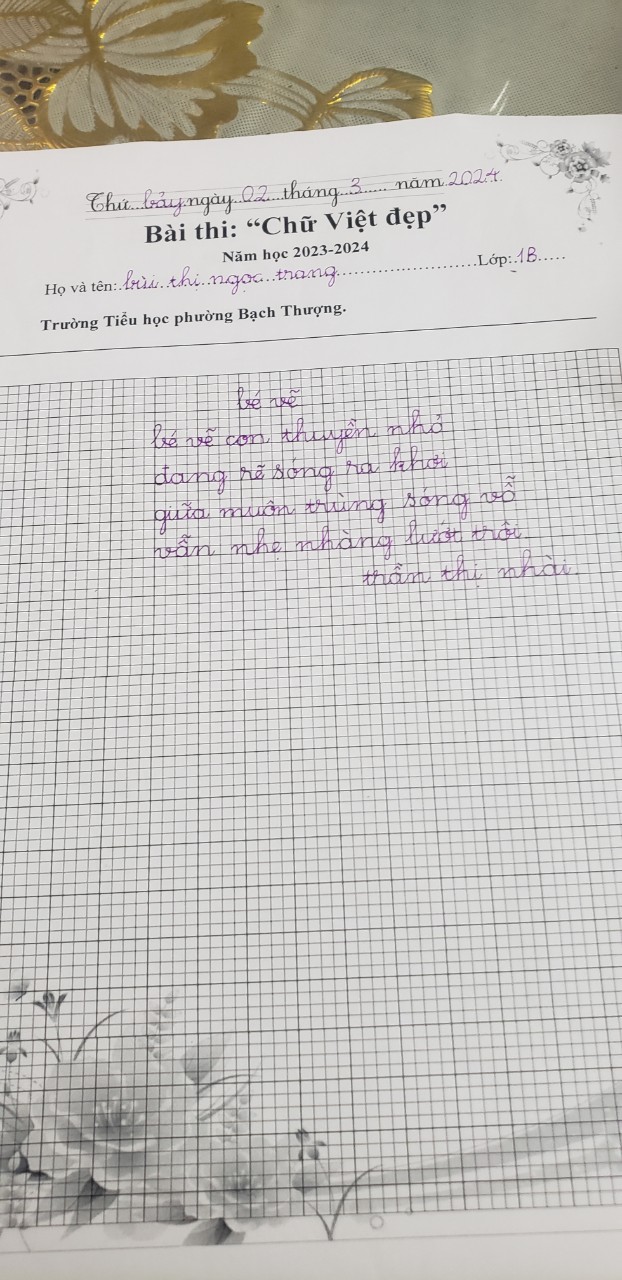 Thứ...bảy.ngày..02...tháng..3..... năm.2024.
Bài thi: “Chữ Việt đẹp”
Năm học 2023-2024
Họ và tên:.bùi..thị..ngọc..trang..........................Lớp:.1B.....
Trường Tiểu học phường Bạch Thượng.
bé vẽ
bé vẽ con thuyền nhỏ
đang rẽ sóng ra khơi
giữa muôn trùng sóng vỗ
vẫn nhẹ nhàng lướt trôi
trần thị nhài.